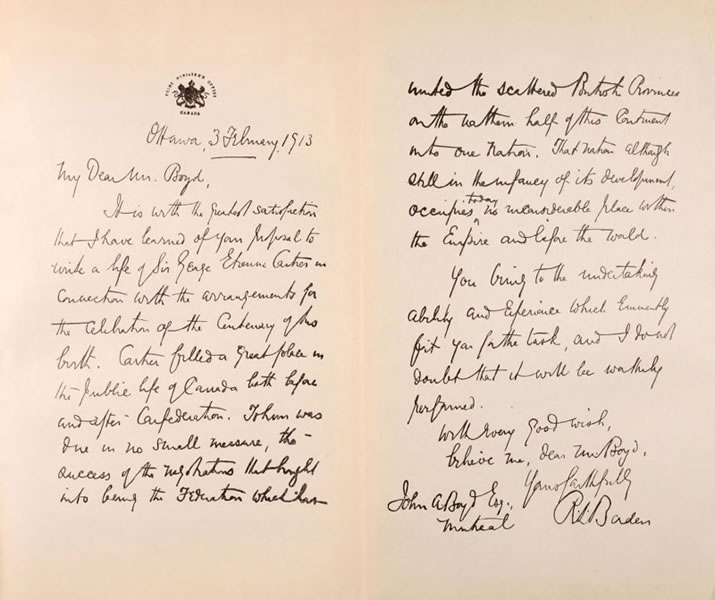 PRIME MINISTER'S OFFICE
CANADA
Ottawa, 3 February, 1913
My Dear Mr. Boyd,
It is with the greatest satisfaction
that I have learned of your proposal to
write a life of Sir George Etienne Cartier in
connection with the arrangements for
the celebration of the Centenary of his
birth. Cartier filled a great place in
the public life of Canada both before
and after Confederation. To him was
due in no small measure, the
success of the negotiations that brought
into being the Federation which has
united the scattered British Provinces
on the northern half of this Continent
into one Nation. That nation although
still in the infancy of its development,
occupies today no inconsiderable place within
the Empire and before the world.
You bring to the undertaking
ability and experience which eminently
fit you for the task, and I do not
doubt that it will be worthily
performed.
With every good wish,
believe me, dear Mr. Boyd,
Yours faithfully
R L Borden
John A Boyd Esq.,
Montreal